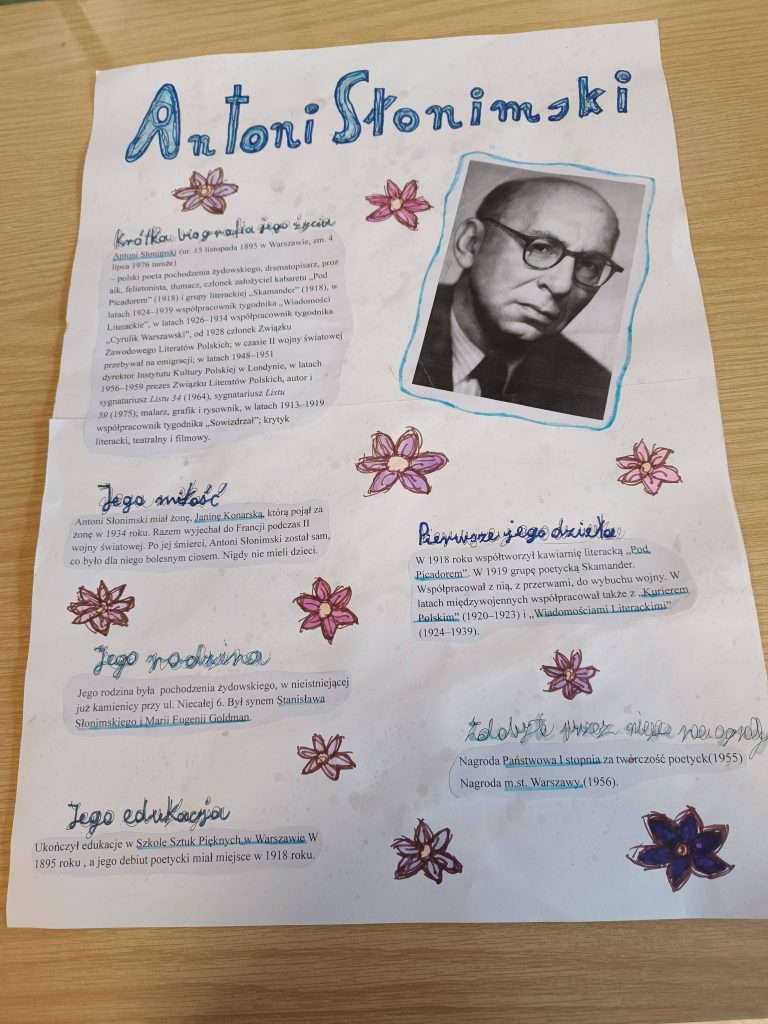 Antoni Słonimski
Krótka biografia jego życia
Antoni Słonimski (ur. 15 listopada 1895 w Warszawie, zm. 4
lipca 1976 tamże)
– polski poeta pochodzenia żydowskiego, dramatopisarz, proz
aik, felietonista, tłumacz, członek założyciel kabaretu „Pod
Picadorem” (1918) i grupy literackiej „Skamander” (1918), w
latach 1924–1939 współpracownik tygodnika „Wiadomości
Literackie”, w latach 1926–1934 współpracownik tygodnika
„Cyrulik Warszawski”, od 1928 członek Związku
Zawodowego Literatów Polskich; w czasie II wojny światowej
przebywał na emigracji; w latach 1948–1951
dyrektor Instytutu Kultury Polskiej w Londynie, w latach
1956–1959 prezes Związku Literatów Polskich, autor i
sygnatariusz Listu 34 (1964), sygnatariusz Listu
59 (1975); malarz, grafik i rysownik, w latach 1913–1919
współpracownik tygodnika „Sowizdrzał”; krytyk
literacki, teatralny i filmowy.
Jego miłość
Antoni Słonimski miał żonę, Janinę Konarską, którą pojął za
żonę w 1934 roku. Razem wyjechał do Francji podczas II
wojny światowej. Po jej śmierci, Antoni Słonimski został sam,
co było dla niego bolesnym ciosem. Nigdy nie mieli dzieci.
Jego rodzina
Jego rodzina była pochodzenia żydowskiego, w nieistniejącej
już kamienicy przy ul. Niecałej 6. Był synem Stanisława
Słonimskiego i Marii Eugenii Goldman.
Jego edukacja
Ukończył edukacje w Szkole Sztuk Pięknych w Warszawie W
1895 roku , a jego debiut poetycki miał miejsce w 1918 roku.
Pierwsze jego dzieła
W 1918 roku współtworzył kawiarnię literacką „Pod
Picadorem”. W 1919 grupę poetycką Skamander.
Współpracował z nią, z przerwami, do wybuchu wojny. W
latach międzywojennych współpracował także z „Kurierem
Polskim” (1920–1923) i „Wiadomościami Literackimi”
(1924–1939).
Zdobyte przez niego nagrody
Nagroda Państwowa I stopnia za twórczość poetyck(1955)
Nagroda m.st. Warszawy (1956).